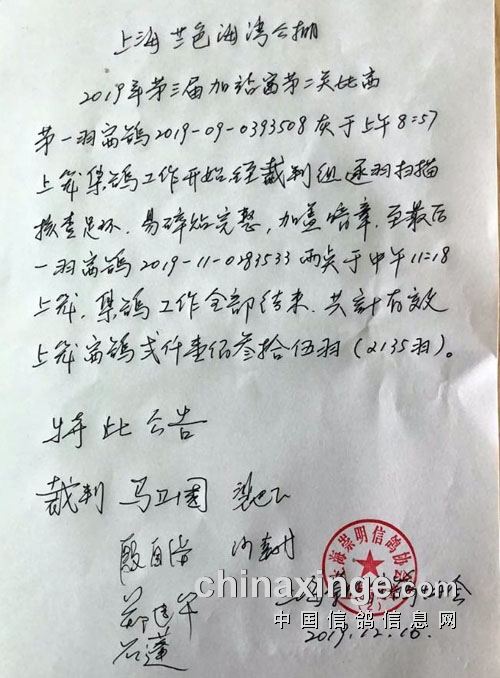 上海兰色海湾公棚
2019年第三届加站赛第二关比赛
第一羽赛鸽2019-09-0393508灰于上午8:57
上笼集鸽工作开始经裁判组逐羽扫描
核查足环、易碎贴完整,加盖暗章,至最后
一羽赛鸽2019-11-0283533雨点于中午11:18
上笼,集鸽工作全部结束,共计有效
上笼赛鸽弍仟壹佰叁拾伍羽(2135羽)。
特此公告
裁判 马卫国
殷自
郑建军
石莲
上海崇明信鸽协会
2019.12.16.
上海崇明信鸽协会
chinaxinge.com
中国信鸽信息网